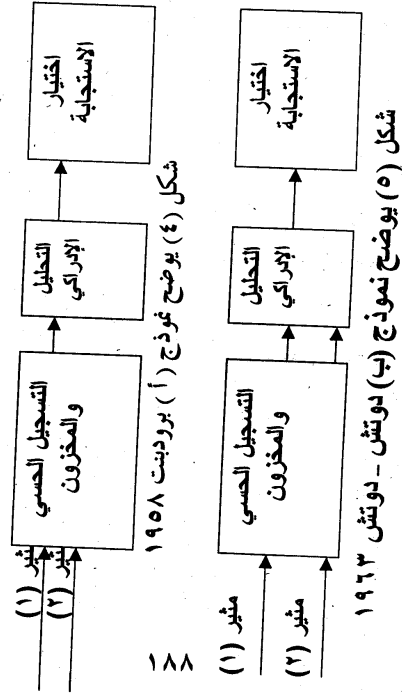 مثير (١)
مثير (٢)
التسجيل الحسي
والمخزون
التحليل
الإدراكي
اختيار
الاستجابة
شكل (٤) يوضح نموذج (أ) برودبنت ١٩٥٨
مثير (١)
مثير (٢)
التسجيل الحسي
والمخزون
التحليل
الإدراكي
اختيار
الاستجابة
شكل (٥) يوضح نموذج (ب) دوتش - دوتش ١٩٦٣
١٨٨